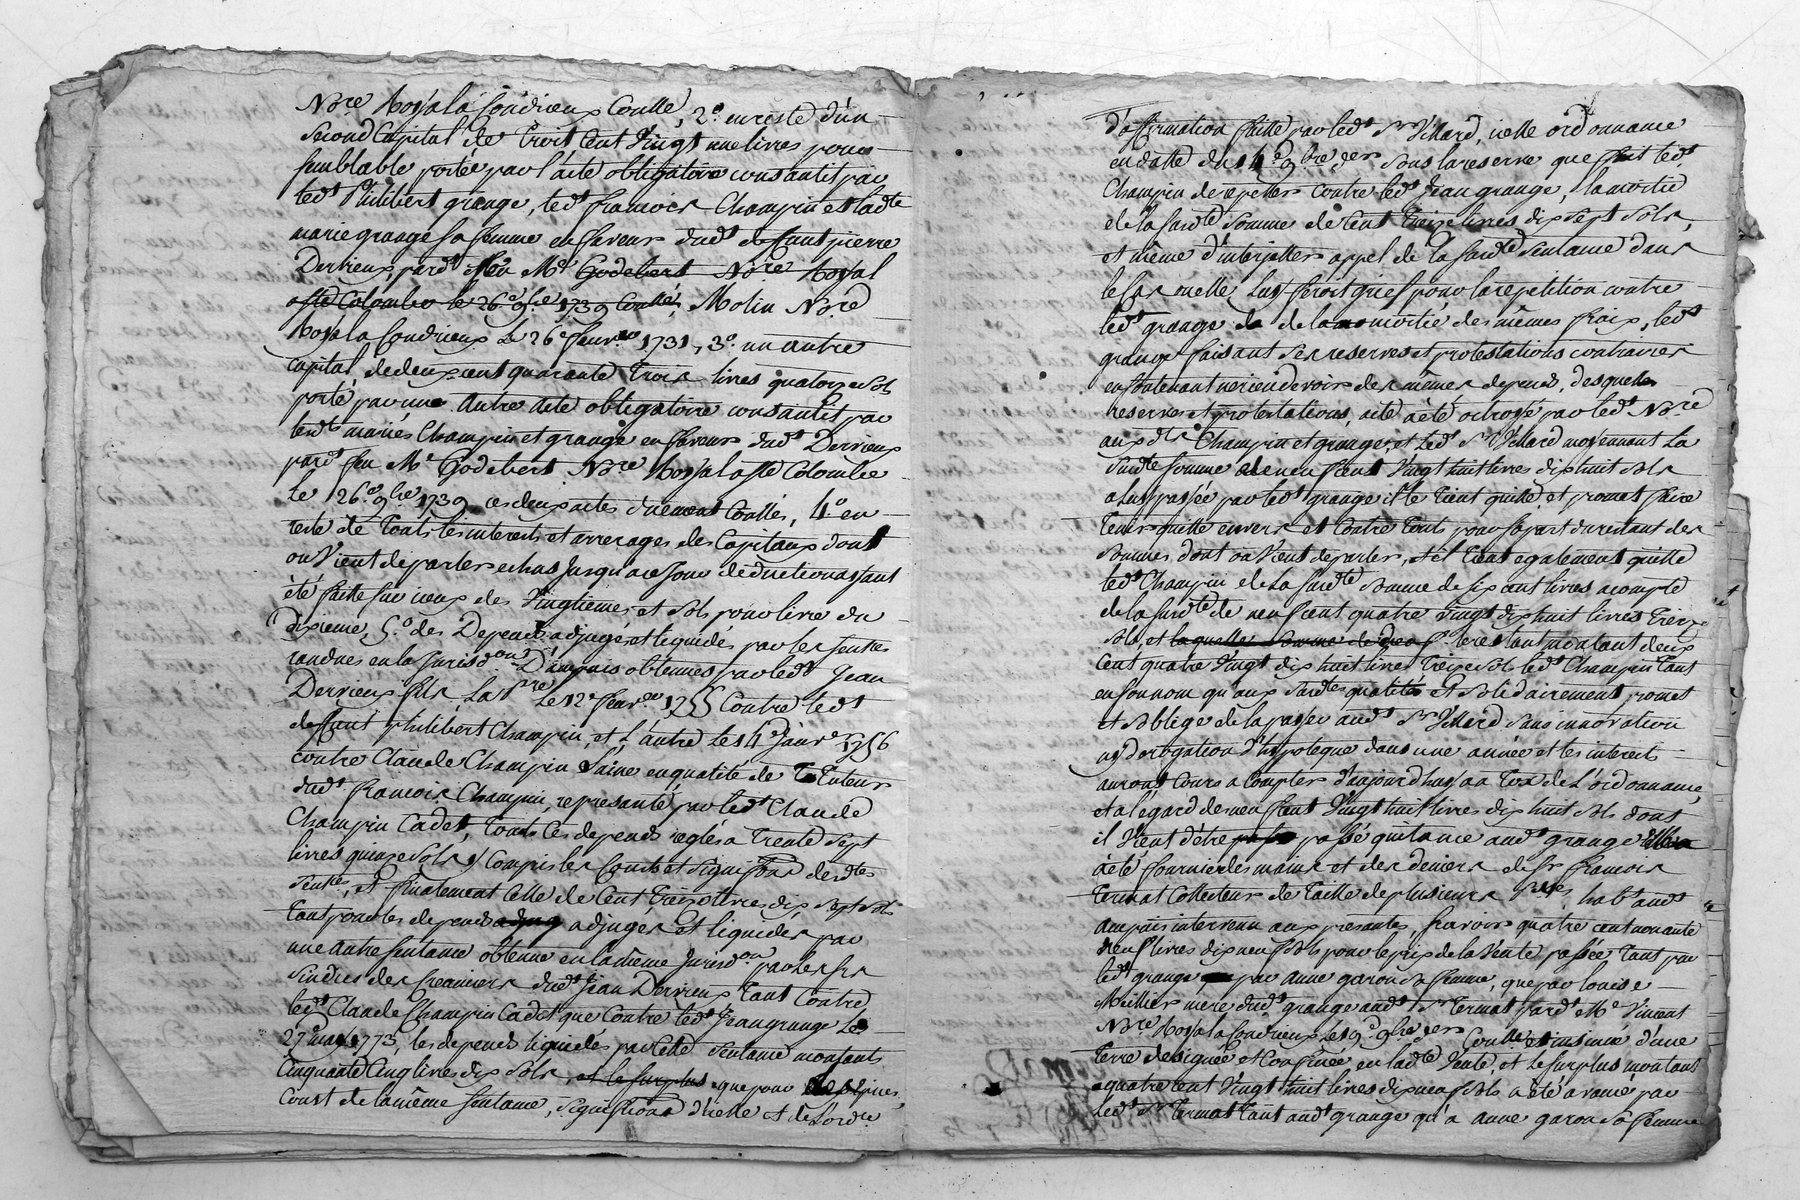 Nore Royal à Condrieux Contle, 2.o en reste d'un
second Capital de trois Cent Vingt une livres pour
semblable portée par l'acte obligatoire consantit par
ledt Philibert grange, ledt francois Champin et ladte
marie grange sa femme en faveur dudt deffunt pierre
Derrieux pardt feu Me Godebert Nore Royal
a ste Colombe le 26e 9bre 1739 Contlé, Molin Nore
Royal a Condrieux Le 26e feuvr 1731, 3.o un autre
Capital de deux cent quarante trois livres quatorze sols
porté par une autre acte obligatoire consantit par
lesdts mariés Champin et grange en faveur dudt Derrieux
pardt feu Me Godebert Nore Royal a ste Colombe
le 26e 9bre 1739 ces deux actes duement Contlés, 4.o en
reste de touts les interests et arrerages des Capitaux dont
on Vient de parler echus jusqu'a ce jour deduction ayant
été faitte sur iceux des Vingtiemes et sols pour livre du
dixieme, 5.o des Depends adjugés et liquidés par les sentces
randues en la Jurisdon D'ampuis obtenues par ledt Jean
Derrieux fils La 1re le 12e feuvr 1755 Contre ledt
deffunt philibert Champin, et L'autre le 14e janvr 1756
contre Claude Champin L'ainé en qualité de Tuteur
dudt francois Champin, représanté par ledt Claude
Champin Cadet, touts Ces depends reglés a trente sept
livres quinze sols y Compris les Cousts et signiffons desdtes
sentces, et finalement Celle de Cent treize livres dix sept sols
tant pour les depends adjugés et liquidés par
une autre sentance obtenue en la même Jurisdon par les srs
sindics des Creanciers dudt Jean Derrieux tant Contre
ledt Claude Champin Cadet que Contre ledt Jean grange le
27e may 1773, les depends liquidés par lade sentance montants
Cinquante Cinq livres dix sols, et le surplus que pour les epices,
Coust de la même sentance, signiffons d'icelle et de L'ordce
d'affirmation faitte par ledt sr Villard, icelle ordonnance
en datte du 14e 9bre der sous la reserve que fait ledt
Champin de repetter contre ledt Jean grange, la moitié
de la susdte somme de Cent treize livres dix sept sols,
et même d'interjetter appel de la susdte sentance dans
le Cas ou elle Luy feroit grief pour la repetition contre
ledt grange de la moitié des mêmes fraix, ledt
grange faisant ses reserves et protestations contraires
en soutenant ne rien devoir des mêmes depends, desquelles
reserves et protestations, acte a été octroyé par ledt Nore
auxdts Champin et grange, et Ledt sr Villard moyennant La
susdte somme de neuf Cent Vingt huit livres dix huit sols
a Luy passée par ledt grange il le tient quitte et promet faire
tenir quitte envers et Contre touts pour sa part du restant des
sommes dont on Vient de parler, et tient egalement quitte
ledt Champin de La susdte somme de six cent livres acompte
de la susdte de neuf Cent quatre Vingt dix huit livres treize
sols, et laquelle somme de neuf le restant adalant deux
Cent quatre Vingt dix huit livres treize sols ledt Champin tant
en son nom qu'aux susdtes qualités et solidairement promet
et s'oblige de la passer audt sr Villard sans innovation
ny derogation d'hypoteque dans une année et les interest
auront Cours a Compter d'aujourd'huy au taux de L'ordonnance,
et a l'égard de neuf Cent Vingt huit livres dix huit sols dont
il Vient d'être passé quitance audt grange
a été fournie des mains et des deniers de sr francois
termat Collecteur de taille de plusieurs habt audt
ampuis intervenu aux presantes, savoir quatre cent nonante
neuf livres dix neuf sols pour le prix de la Vente passée tant par
ledt grange que par anne garon sa femme, que par louise
Meillier mere dudt grange audt sr termat pardt Me Vincent
Nore Royal a Condrieux le 19e 9bre der Contlé et insinué d'une
terre designée et Confinée en ladte Vente, et le surplus montant
a quatre Cent Vingt huit livres dix neuf sols a été avancé par
Ledt sr termat tant audt grange qu'a anne garon sa femme